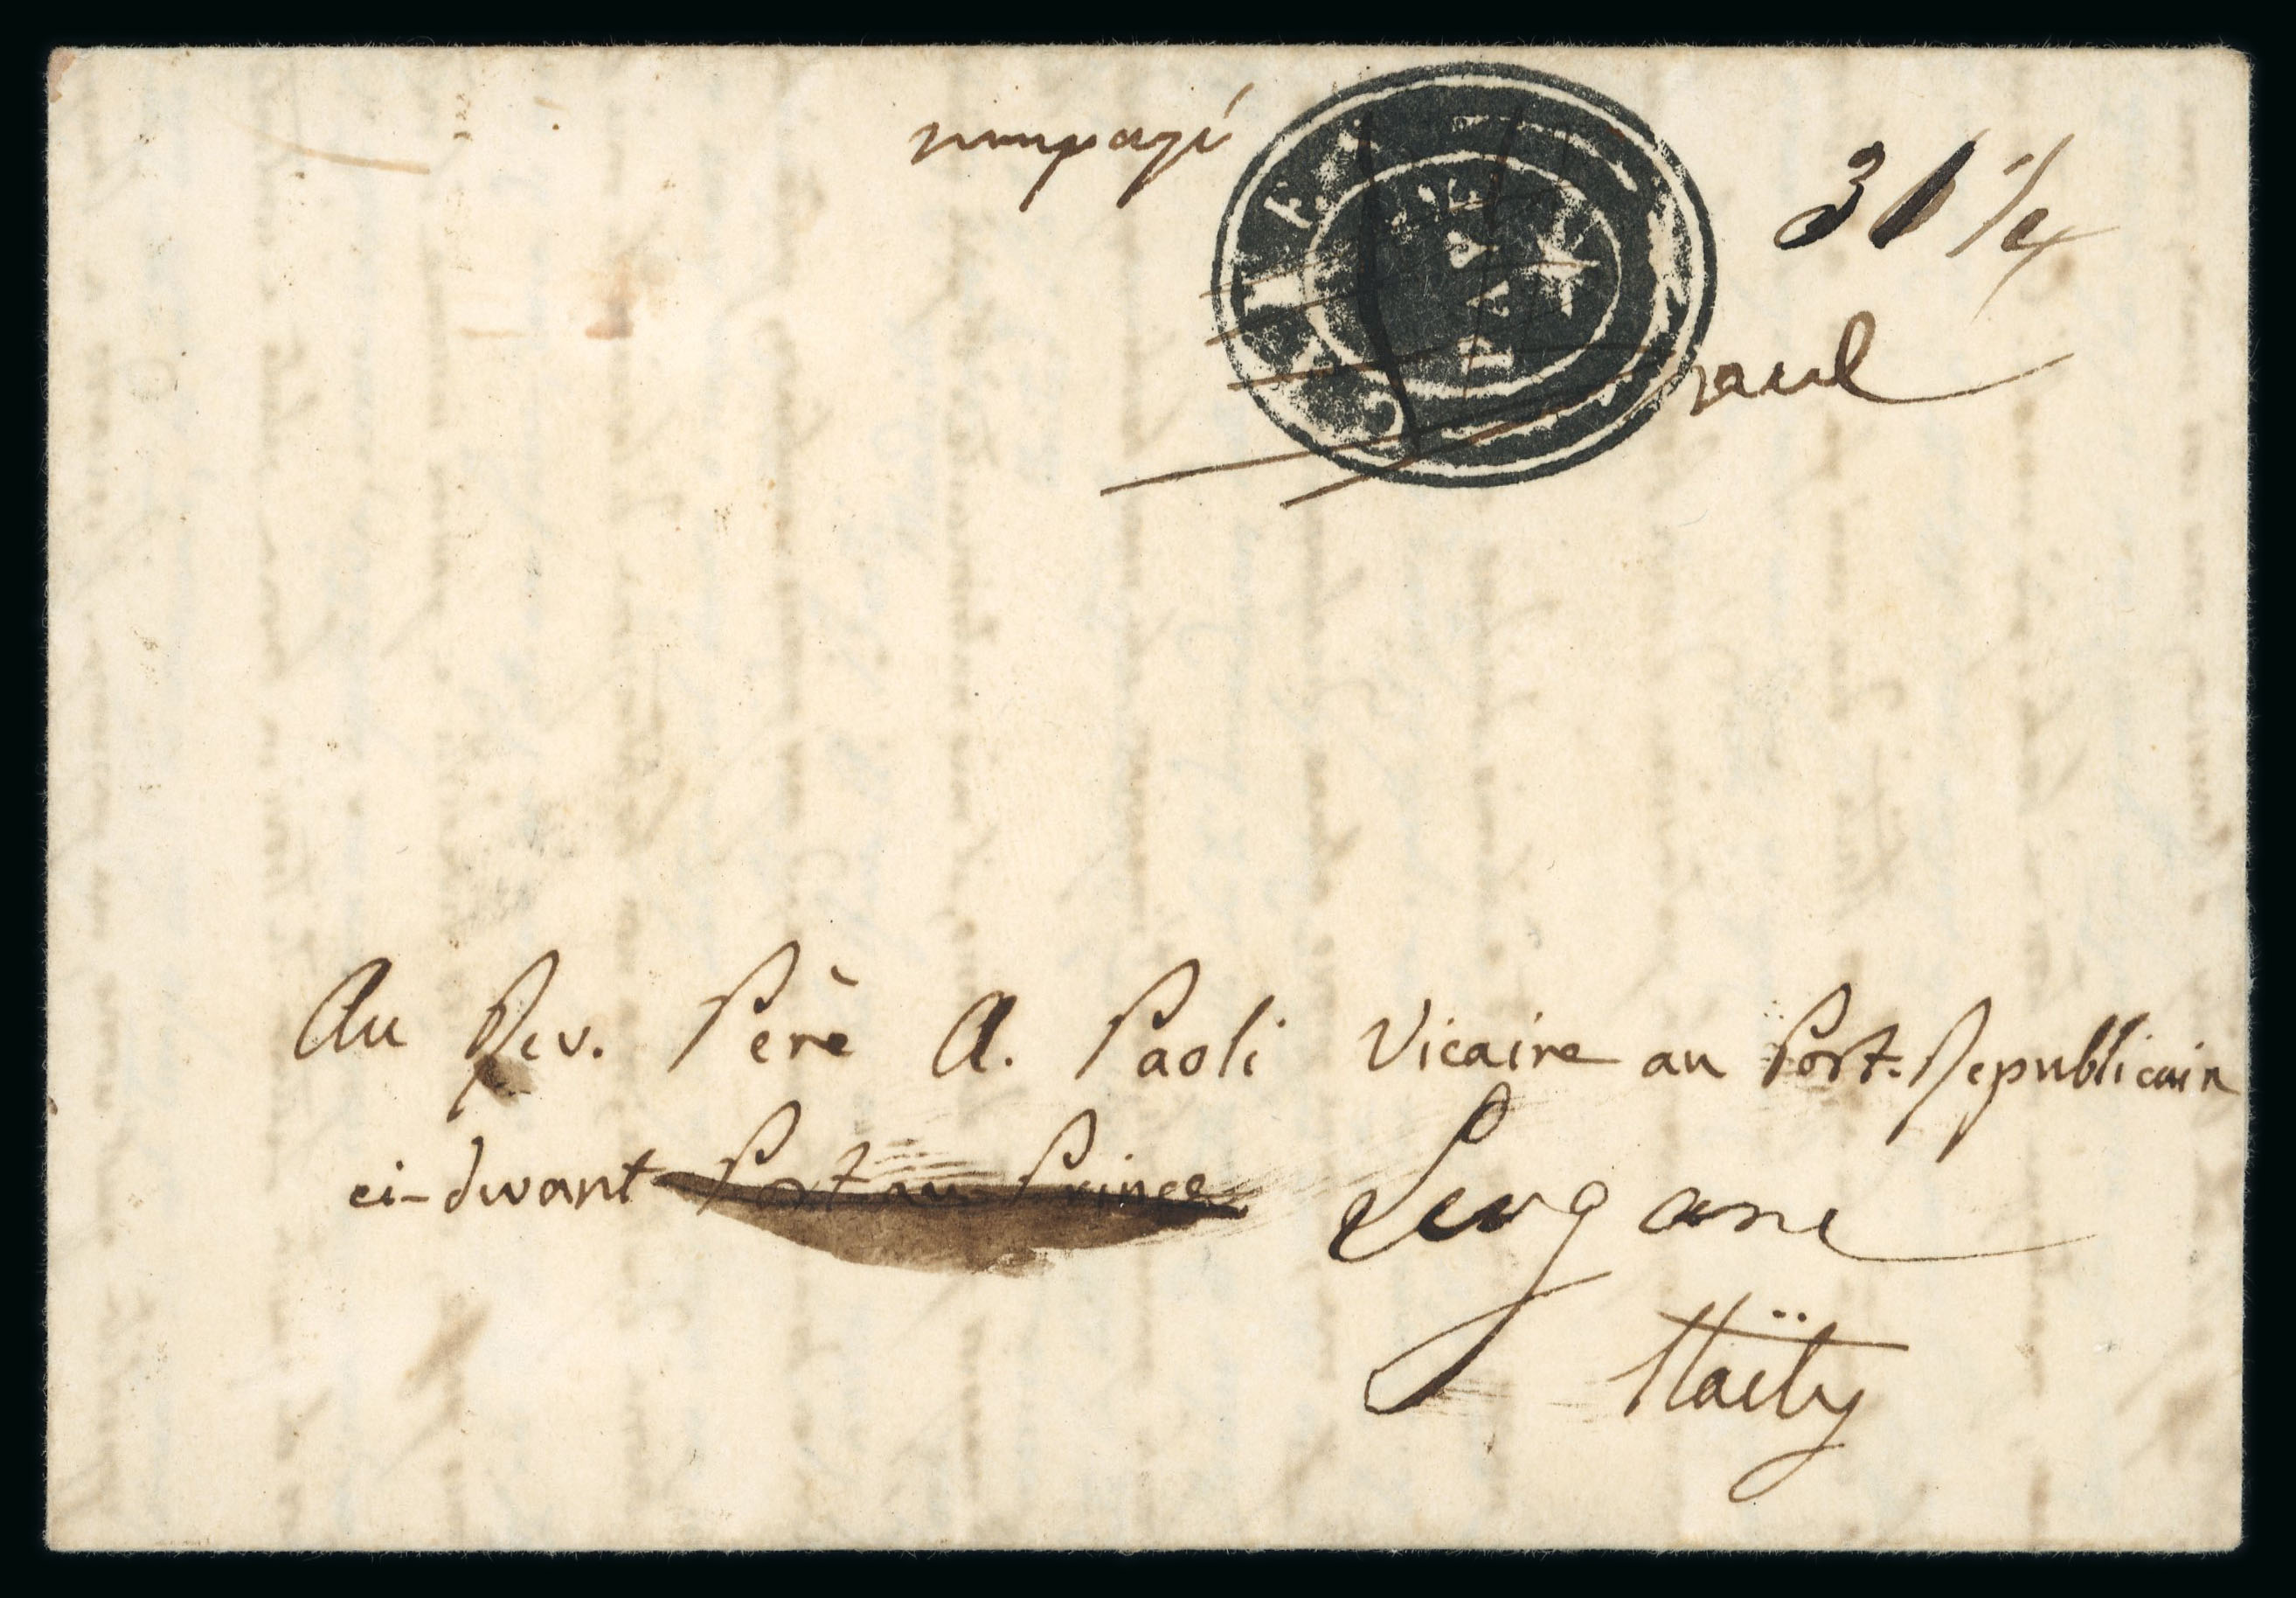 31 1/4
Au Rev. Père A. Paoli Vicaire au Port-Republicain
ci-dvant Port au Prince Leogane
Haïty